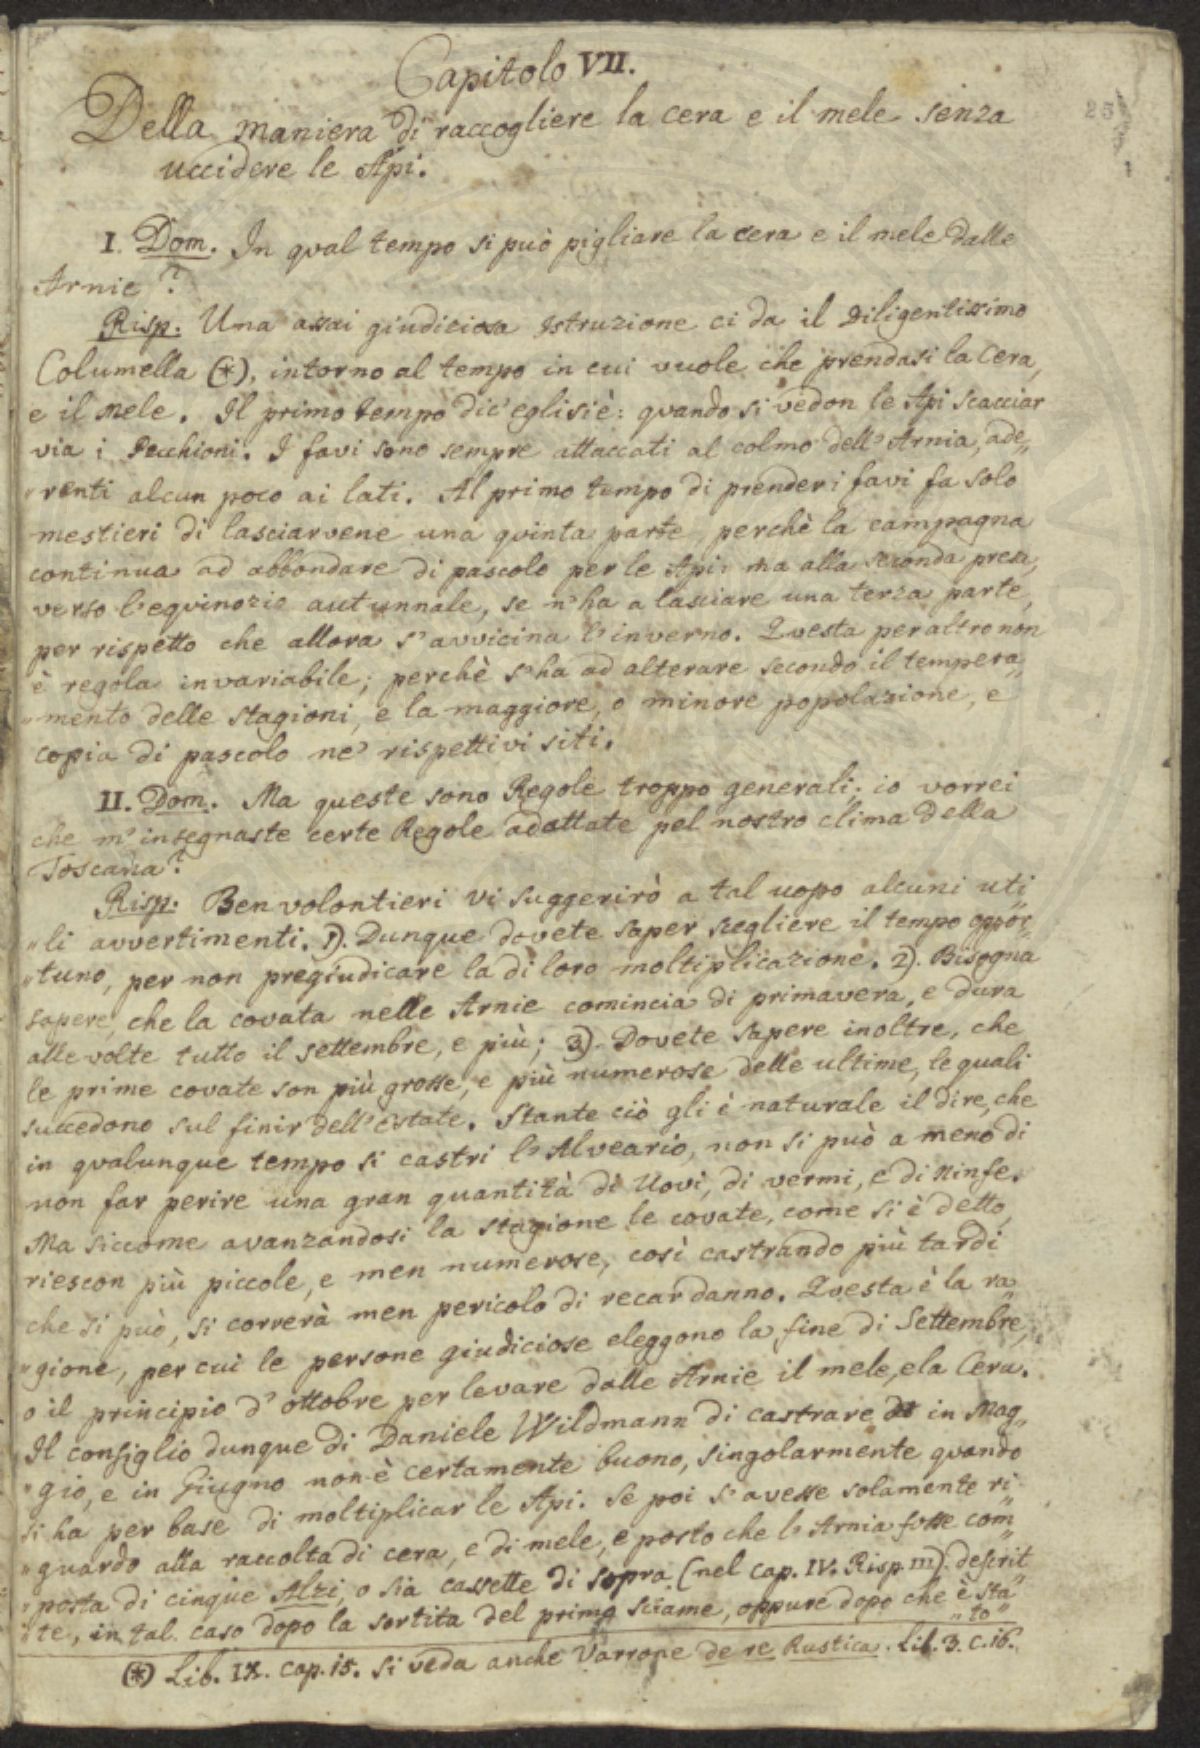 Capitolo VII.
Della maniera di raccogliere la cera e il mele senza
uccidere le Api.
I. Dom. In qual tempo si può pigliare la cera e il mele dalle
Arnie?
Risp. Una assai giudiciosa Istruzione ci da il Diligentissimo
Columella (*), intorno al tempo in cui vuole che prendasi la Cera,
e il Mele. Il primo tempo dic'egli si è: quando si vedon le Api scacciar
via i Pecchioni. I favi sono sempre attaccati al colmo dell'Arnia, ade„
„renti alcun poco ai lati. Al primo tempo di prender i favi fa solo
mestieri di lasciarvene una quinta parte, perchè la campagna
continua ad abbondare di pascolo per le Api: ma alla seconda presa,
verso l'equinozio autunnale, se n'ha a lasciare una terza parte,
per rispetto che allora s'avvicina l'inverno. Questa peraltro non
è regola invariabile; perchè s'ha ad alterare secondo il tempera„
„mento delle stagioni, e la maggiore, o minore popolazione, e
copia di pascolo ne' rispettivi siti.
II. Dom. Ma queste sono Regole troppo generali; io vorrei
che m'insegnaste certe Regole adattate pel nostro clima della
Toscana?
Risp. Ben volontieri vi suggerirò a tal uopo alcuni uti„
„li avvertimenti. 1). Dunque dovete saper scegliere il tempo oppor„
„tuno, per non pregiudicare la di loro moltiplicazione. 2). Bisogna
sapere, che la covata nelle Arnie comincia di primavera, e dura
alle volte tutto il settembre, e più; 3). Dovete sapere inoltre, che
le prime covate son più grosse, e più numerose delle ultime, le quali
succedono sul finir dell'estate. Stante ciò gli è naturale il dire, che
in qualunque tempo si castri l'Alveario, non si può a meno di
non far perire una gran quantità di Uovi, di vermi, e di Ninfe.
Ma siccome avanzandosi la stagione le covate, come si è detto,
riescon più piccole, e men numerose, così castrando più tardi
che si può, si correrà men pericolo di recar danno. Questa è la ra„
„gione, per cui le persone giudiciose eleggono la fine di Settembre,
o il principio d'ottobre per levare dalle Arnie il mele, e la Cera.
Il consiglio dunque di Daniele Wildmann di castrare in Mag„
„gio, e in Giugno non è certamente buono, singolarmente quando
si ha per base di moltiplicar le Api. Se poi s'avesse solamente ri„
„guardo alla raccolta di cera, e di mele, e posto che l'Arnia fosse com„
„posta di cinque Alzi, o sia cassette di sopra (nel cap. IV. Risp. III) descrit„
„te, in tal caso dopo la sortita del primo sciame, oppure dopo che è sta„
„to„
(*) Lib. IX. cap. 15. Si veda anche Varrone de re Rustica. Lib. 3. c. 16.